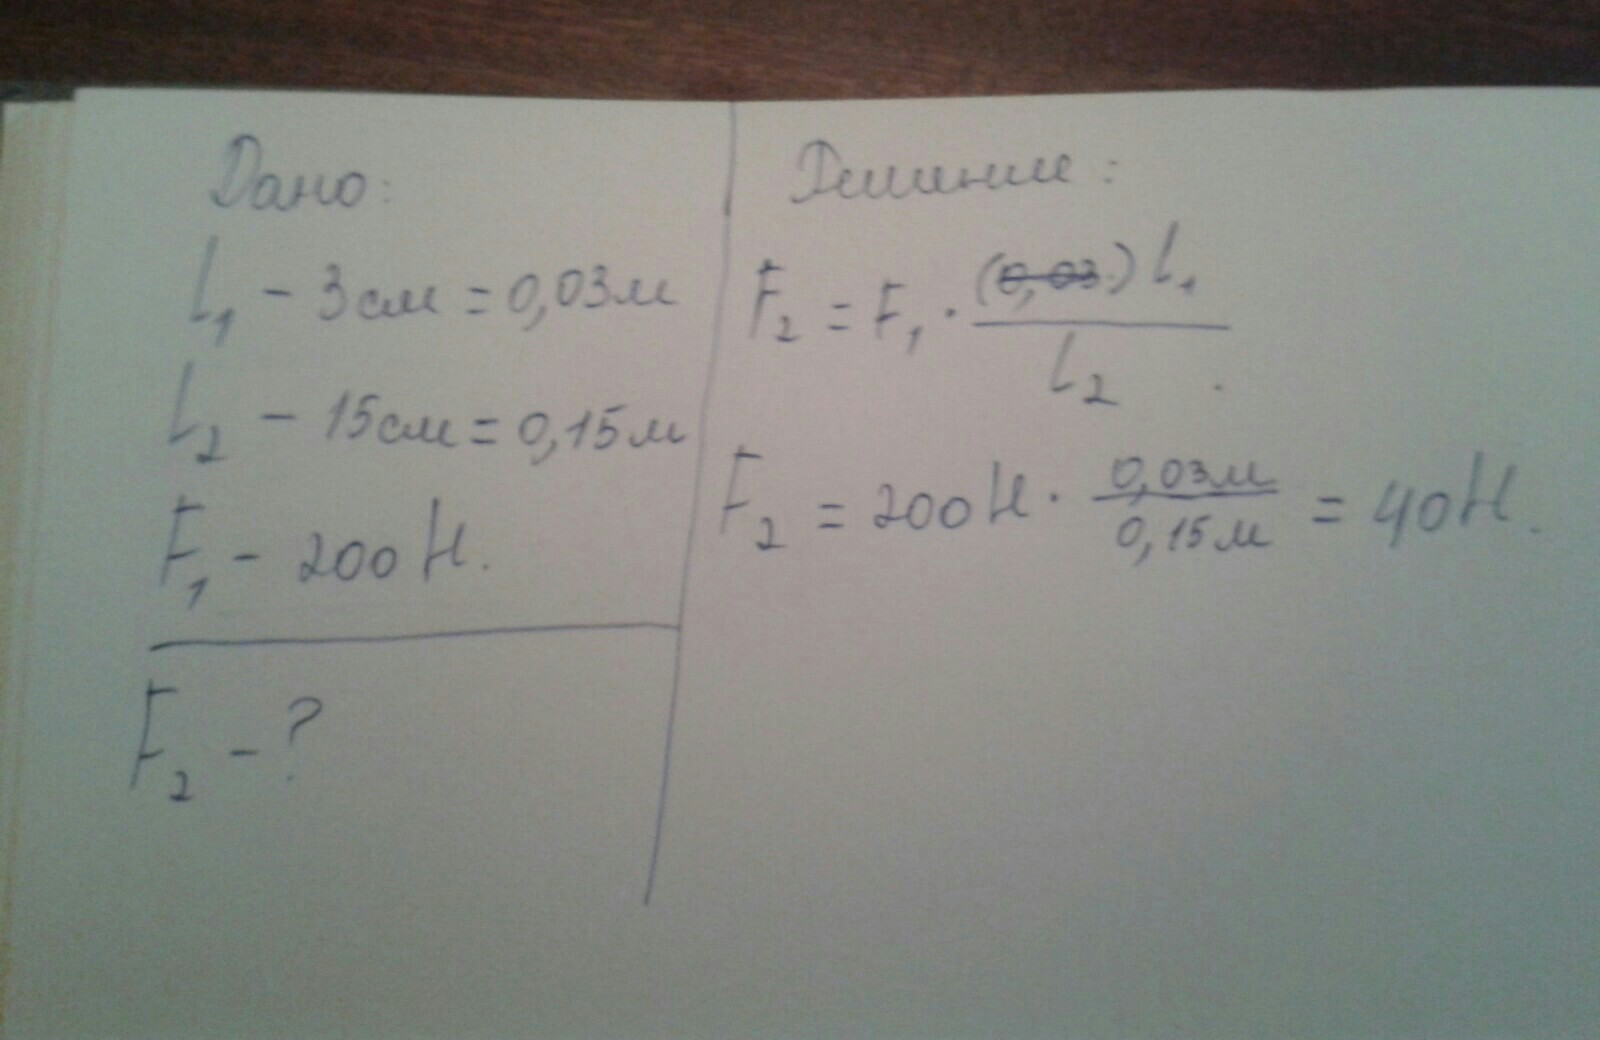 Дано:
l₁ - 3см = 0,03м
l₂ - 15см = 0,15м
F₁ - 200Н.
F₂ - ?
Решение:
F₂ = F₁ · (0,03) l₁ / l₂ .
F₂ = 200Н · 0,03м / 0,15м = 40Н.